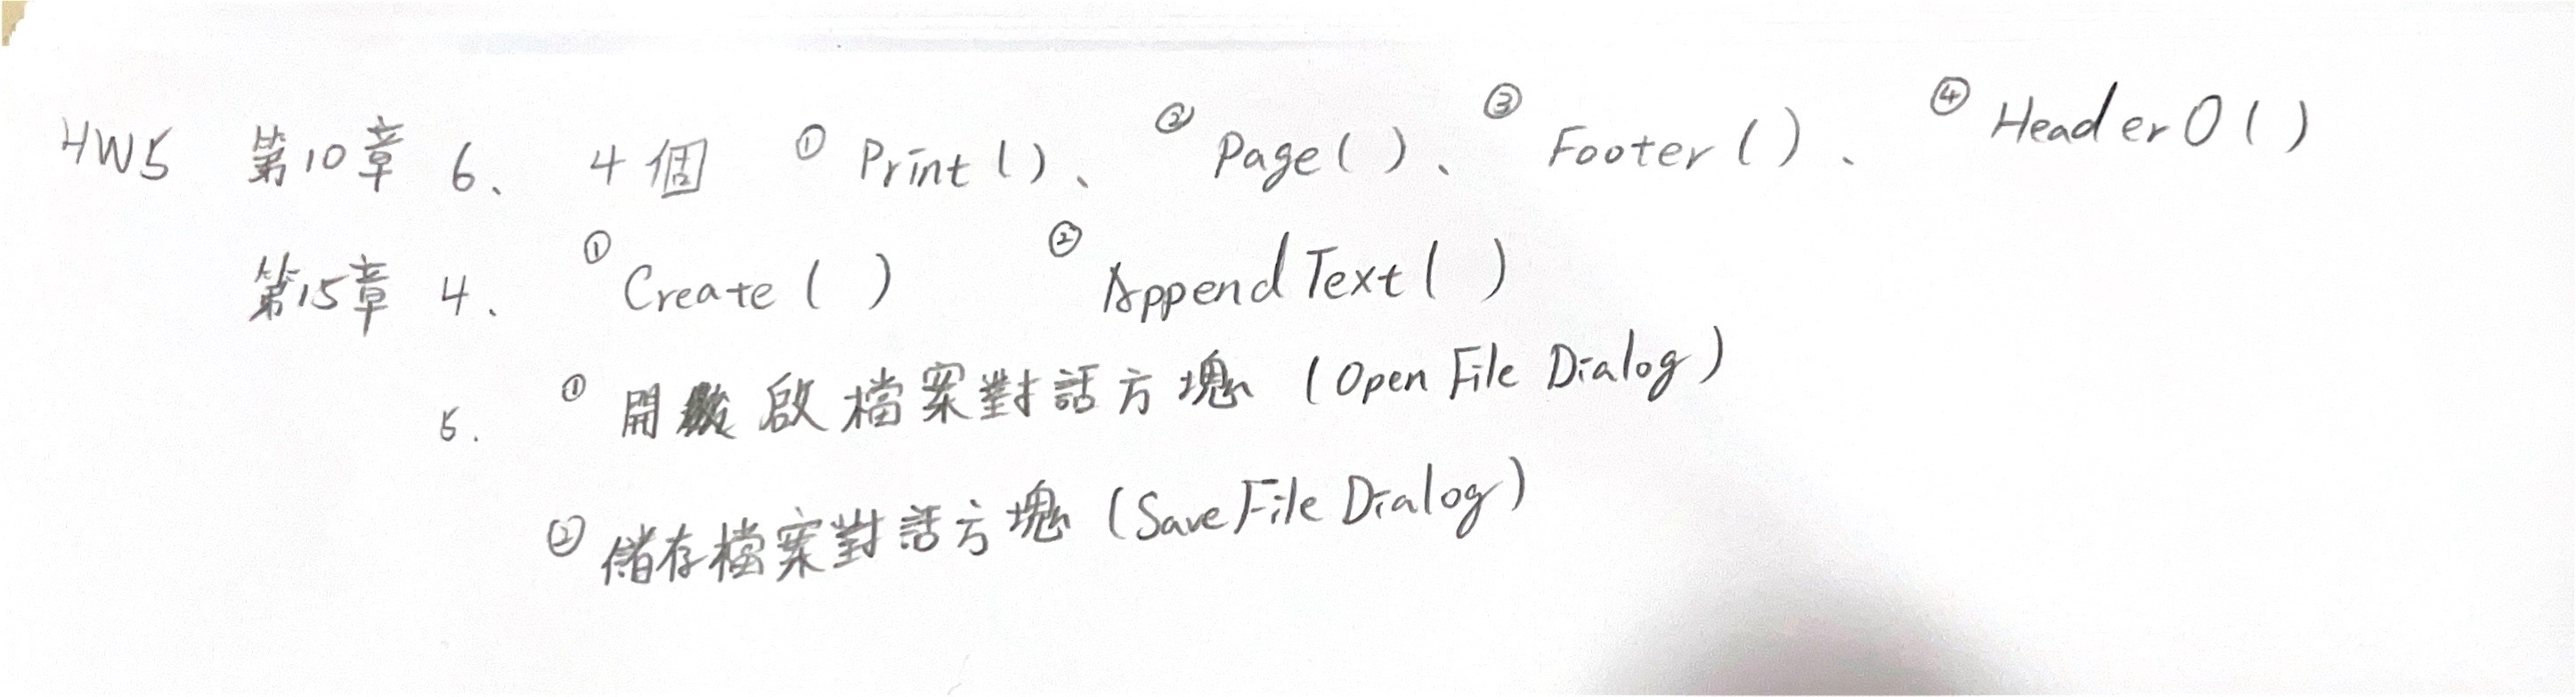 HW5 第10章 6、 4個 ① Print()、 ② Page()、 ③ Footer()、 ④ HeaderO()
第15章 4、 ① Create( ) ② AppendText( )
5. ① 開啟檔案對話方塊 (Open File Dialog)
② 儲存檔案對話方塊 (Save File Dialog)